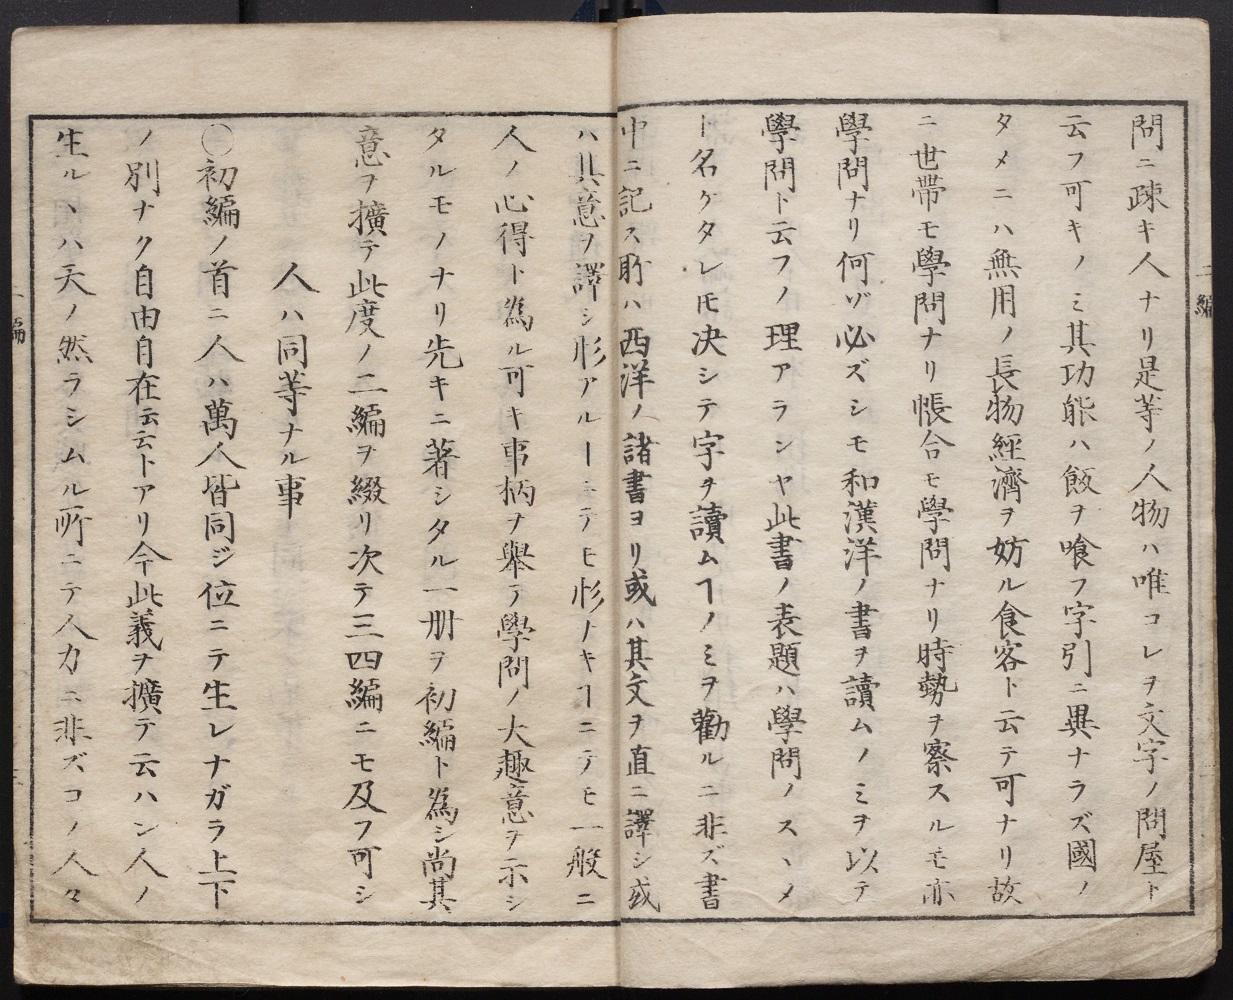 問ニ疎キ人ナリ是等ノ人物ハ唯コレヲ文字ノ問屋ト
云フ可キノミ其功能ハ飯ヲ喰フ字引ニ異ナラズ國ノ
タメニハ無用ノ長物經濟ヲ妨ル食客ト云テ可ナリ故
ニ世帶モ學問ナリ帳合モ學問ナリ時勢ヲ察スルモ亦
學問ナリ何ゾ必ズシモ和漢洋ノ書ヲ讀ムノミヲ以テ
學問ト云フノ理アランヤ此書ノ表題ハ學問ノスヽメ
ト名ケタレ𪜈決シテ字ヲ讀ムヿノミヲ勸ルニ非ズ書
中ニ記ス所ハ西洋ノ諸書ヨリ或ハ其文ヲ直ニ譯シ或
ハ其意ヲ譯シ形アルヿニテモ形ナキヿニテモ一般ニ
人ノ心得ト為ル可キ事柄ヲ舉テ學問ノ大趣意ヲ示シ
タルモノナリ先キニ著シタル一册ヲ初編ト為シ尚其
意ヲ擴テ此度ノ二編ヲ綴リ次テ三四編ニモ及フ可シ
人ハ同等ナル事
〇初編ノ首ニ人ハ萬人皆同ジ位ニテ生レナガラ上下
ノ別ナク自由自在云云トアリ今此義ヲ擴テ云ハン人ノ
生ルヽハ天ノ然ラシムル所ニテ人力ニ非ズコノ人々
二編